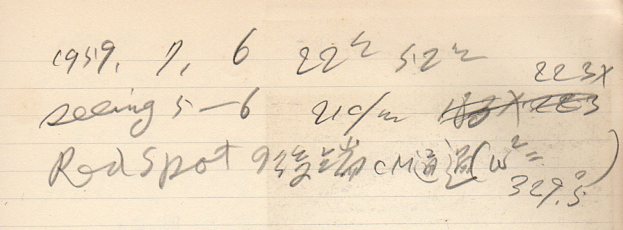 1959, 7, 6 22h 52m
seeing 5-6 21c/m 223X
Red Spot の後端 CM通過 (ω2= 329.°5)